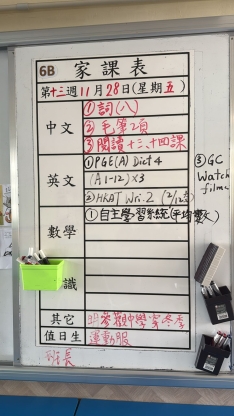 6B 家課表
第十三週11月28日(星期五)
中文
①詞(八)
②毛筆2項
③閱讀十三、十四課
英文
①PGE(A) Dict 4
(A1-12)×3
②HKAT Wri. 2 (2/12交)
③GC
Watch
films
數學
①自主學習系統(平均數)
識
其它
中學
冬季
值日生
運動服
班長